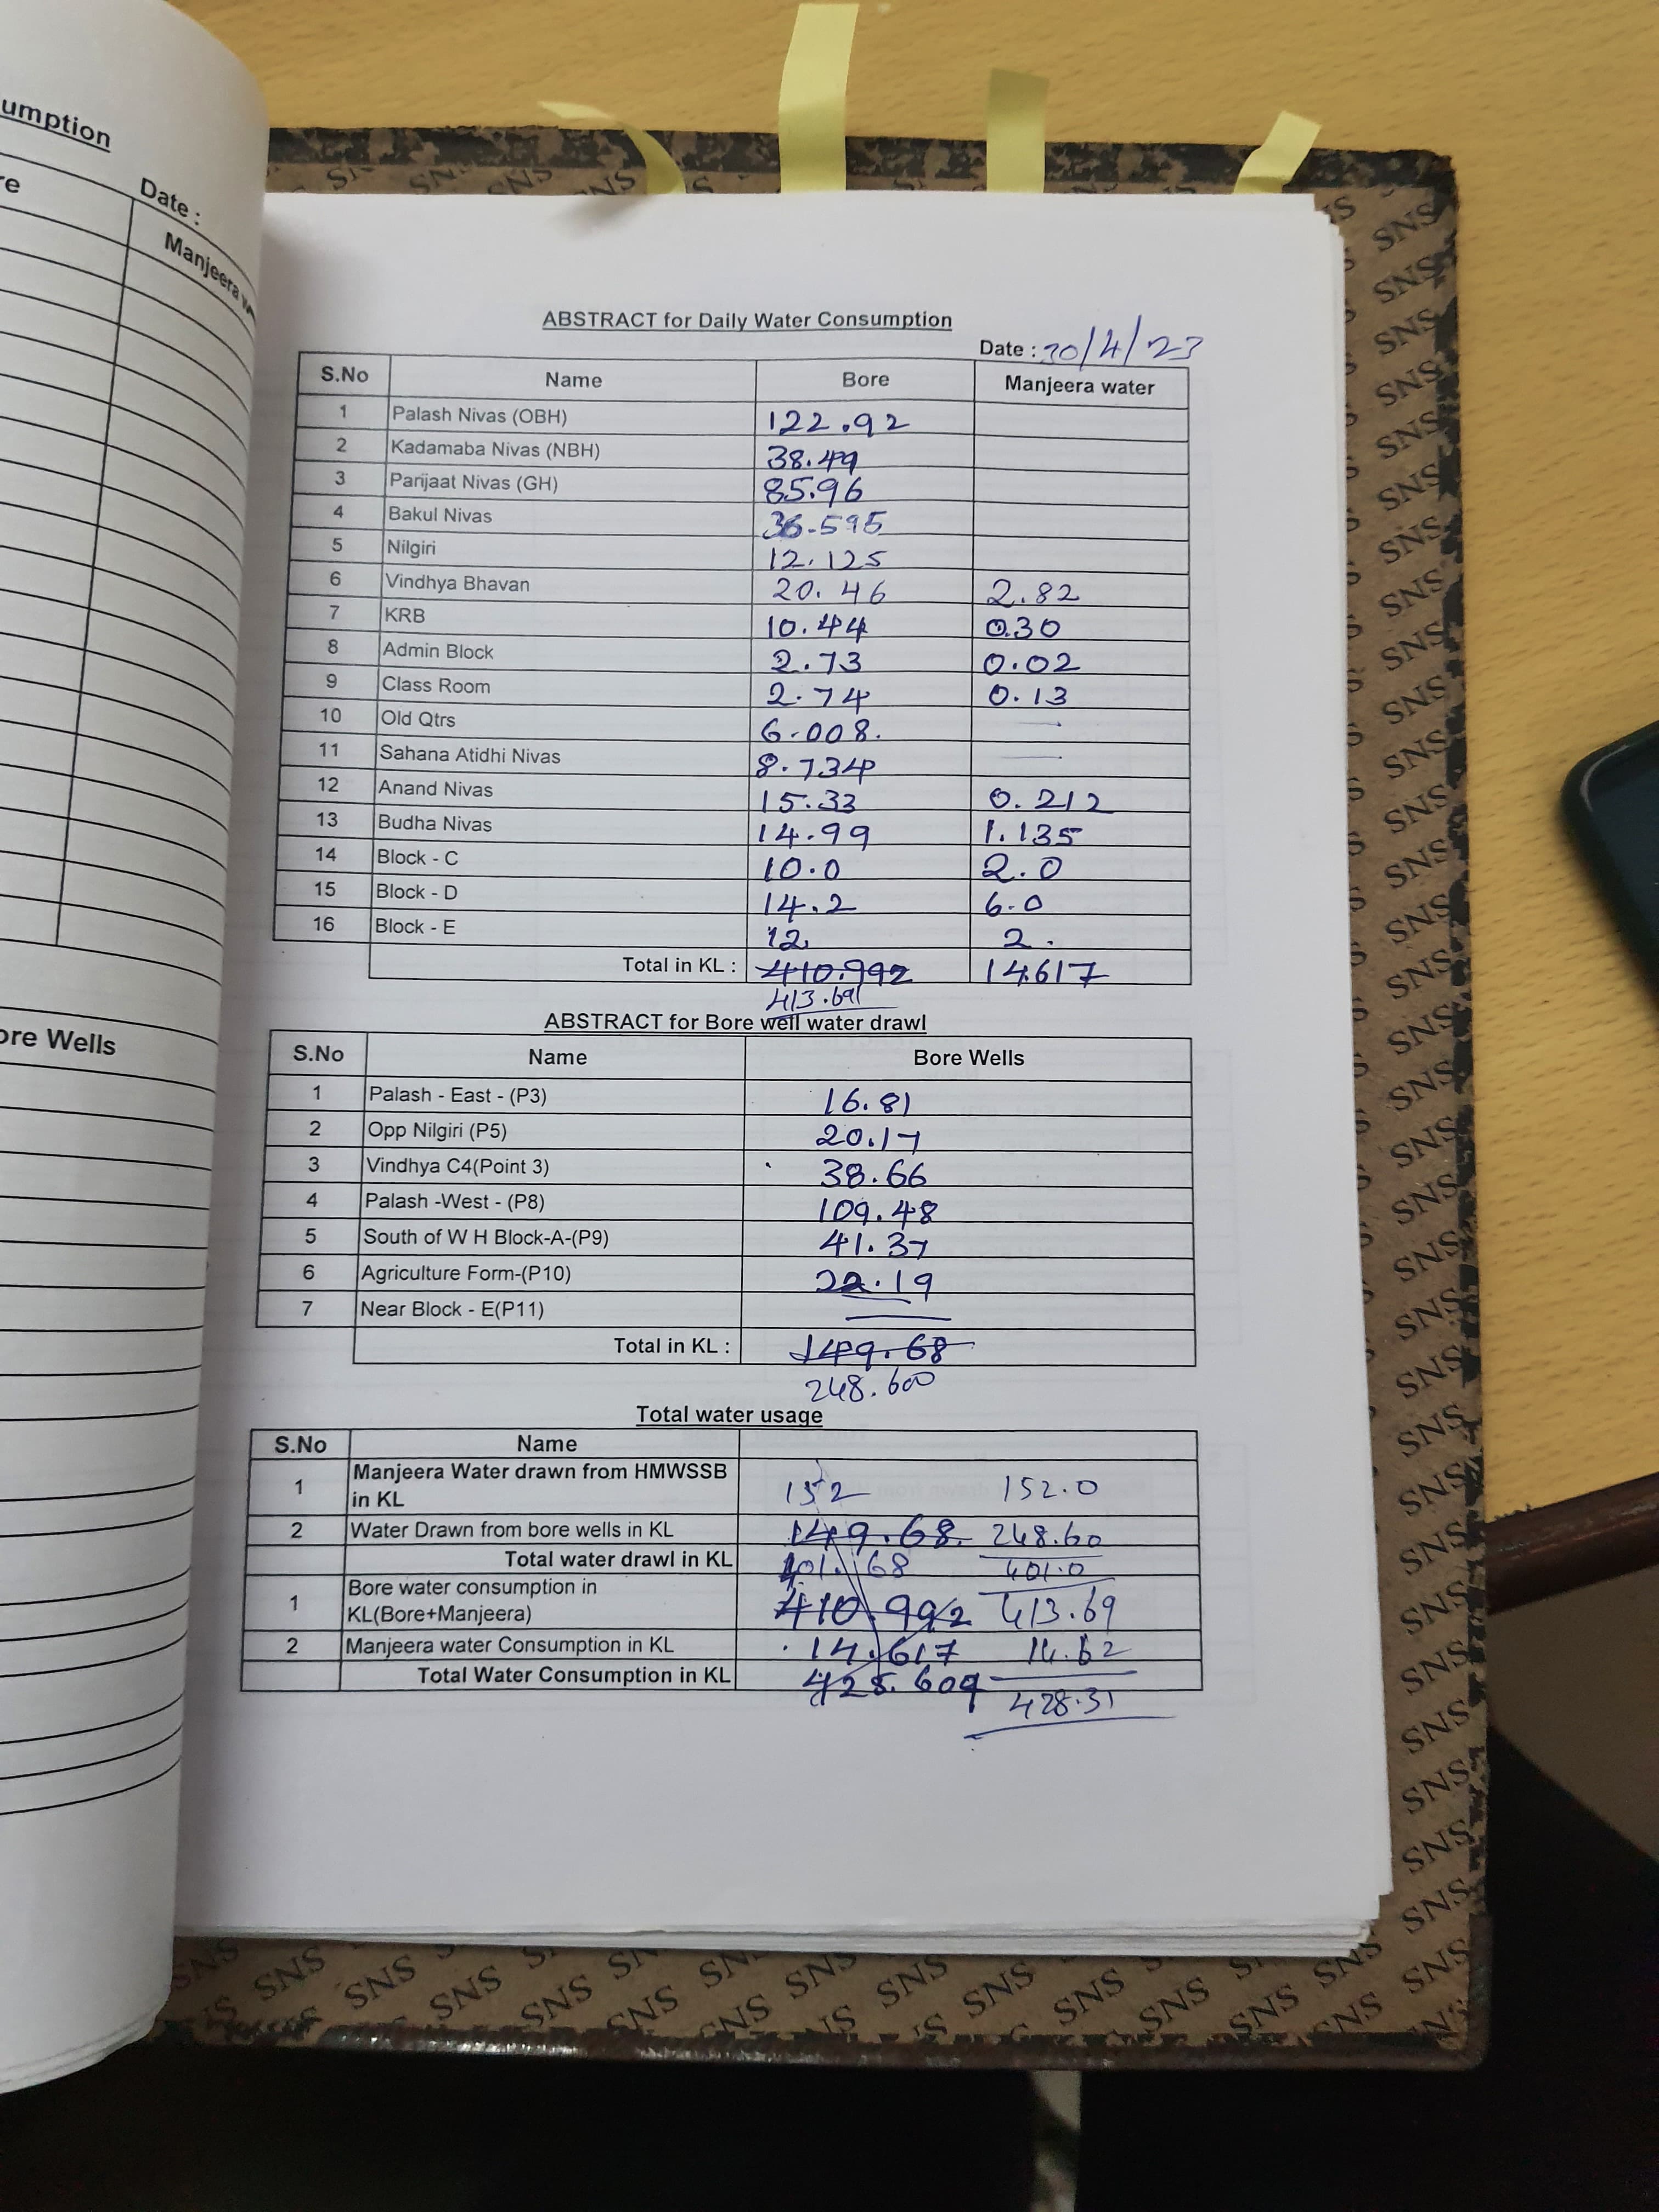 umption
re
Date :
Manjeera w
ore Wells
ABSTRACT for Daily Water Consumption
Date : 30/4/23
S.No Name Bore Manjeera water
1 Palash Nivas (OBH) 122.92
2 Kadamaba Nivas (NBH) 38.49
3 Parijaat Nivas (GH) 85.96
4 Bakul Nivas 36.595
5 Nilgiri 12.125
6 Vindhya Bhavan 20.46 2.82
7 KRB 10.44 0.30
8 Admin Block 2.73 0.02
9 Class Room 2.74 0.13
10 Old Qtrs 6.008. —
11 Sahana Atidhi Nivas 8.734 —
12 Anand Nivas 15.33 0.212
13 Budha Nivas 14.99 1.135
14 Block - C 10.0 2.0
15 Block - D 14.2 6.0
16 Block - E 12 2.
Total in KL : 410.992 14.617
413.691
ABSTRACT for Bore well water drawl
S.No Name Bore Wells
1 Palash - East - (P3) 16.81
2 Opp Nilgiri (P5) 20.17
3 Vindhya C4(Point 3) 38.66
4 Palash -West - (P8) 109.48
5 South of W H Block-A-(P9) 41.37
6 Agriculture Form-(P10) 22.19
7 Near Block - E(P11) —
Total in KL : 149.68
248.600
Total water usage
S.No Name
1 Manjeera Water drawn from HMWSSB in KL 152 152.0
2 Water Drawn from bore wells in KL 149.68. 248.60
Total water drawl in KL 401.68 401.0
1 Bore water consumption in KL(Bore+Manjeera) 410.992 413.69
2 Manjeera water Consumption in KL 14.617 14.62
Total Water Consumption in KL 425.609 428.31
SNS